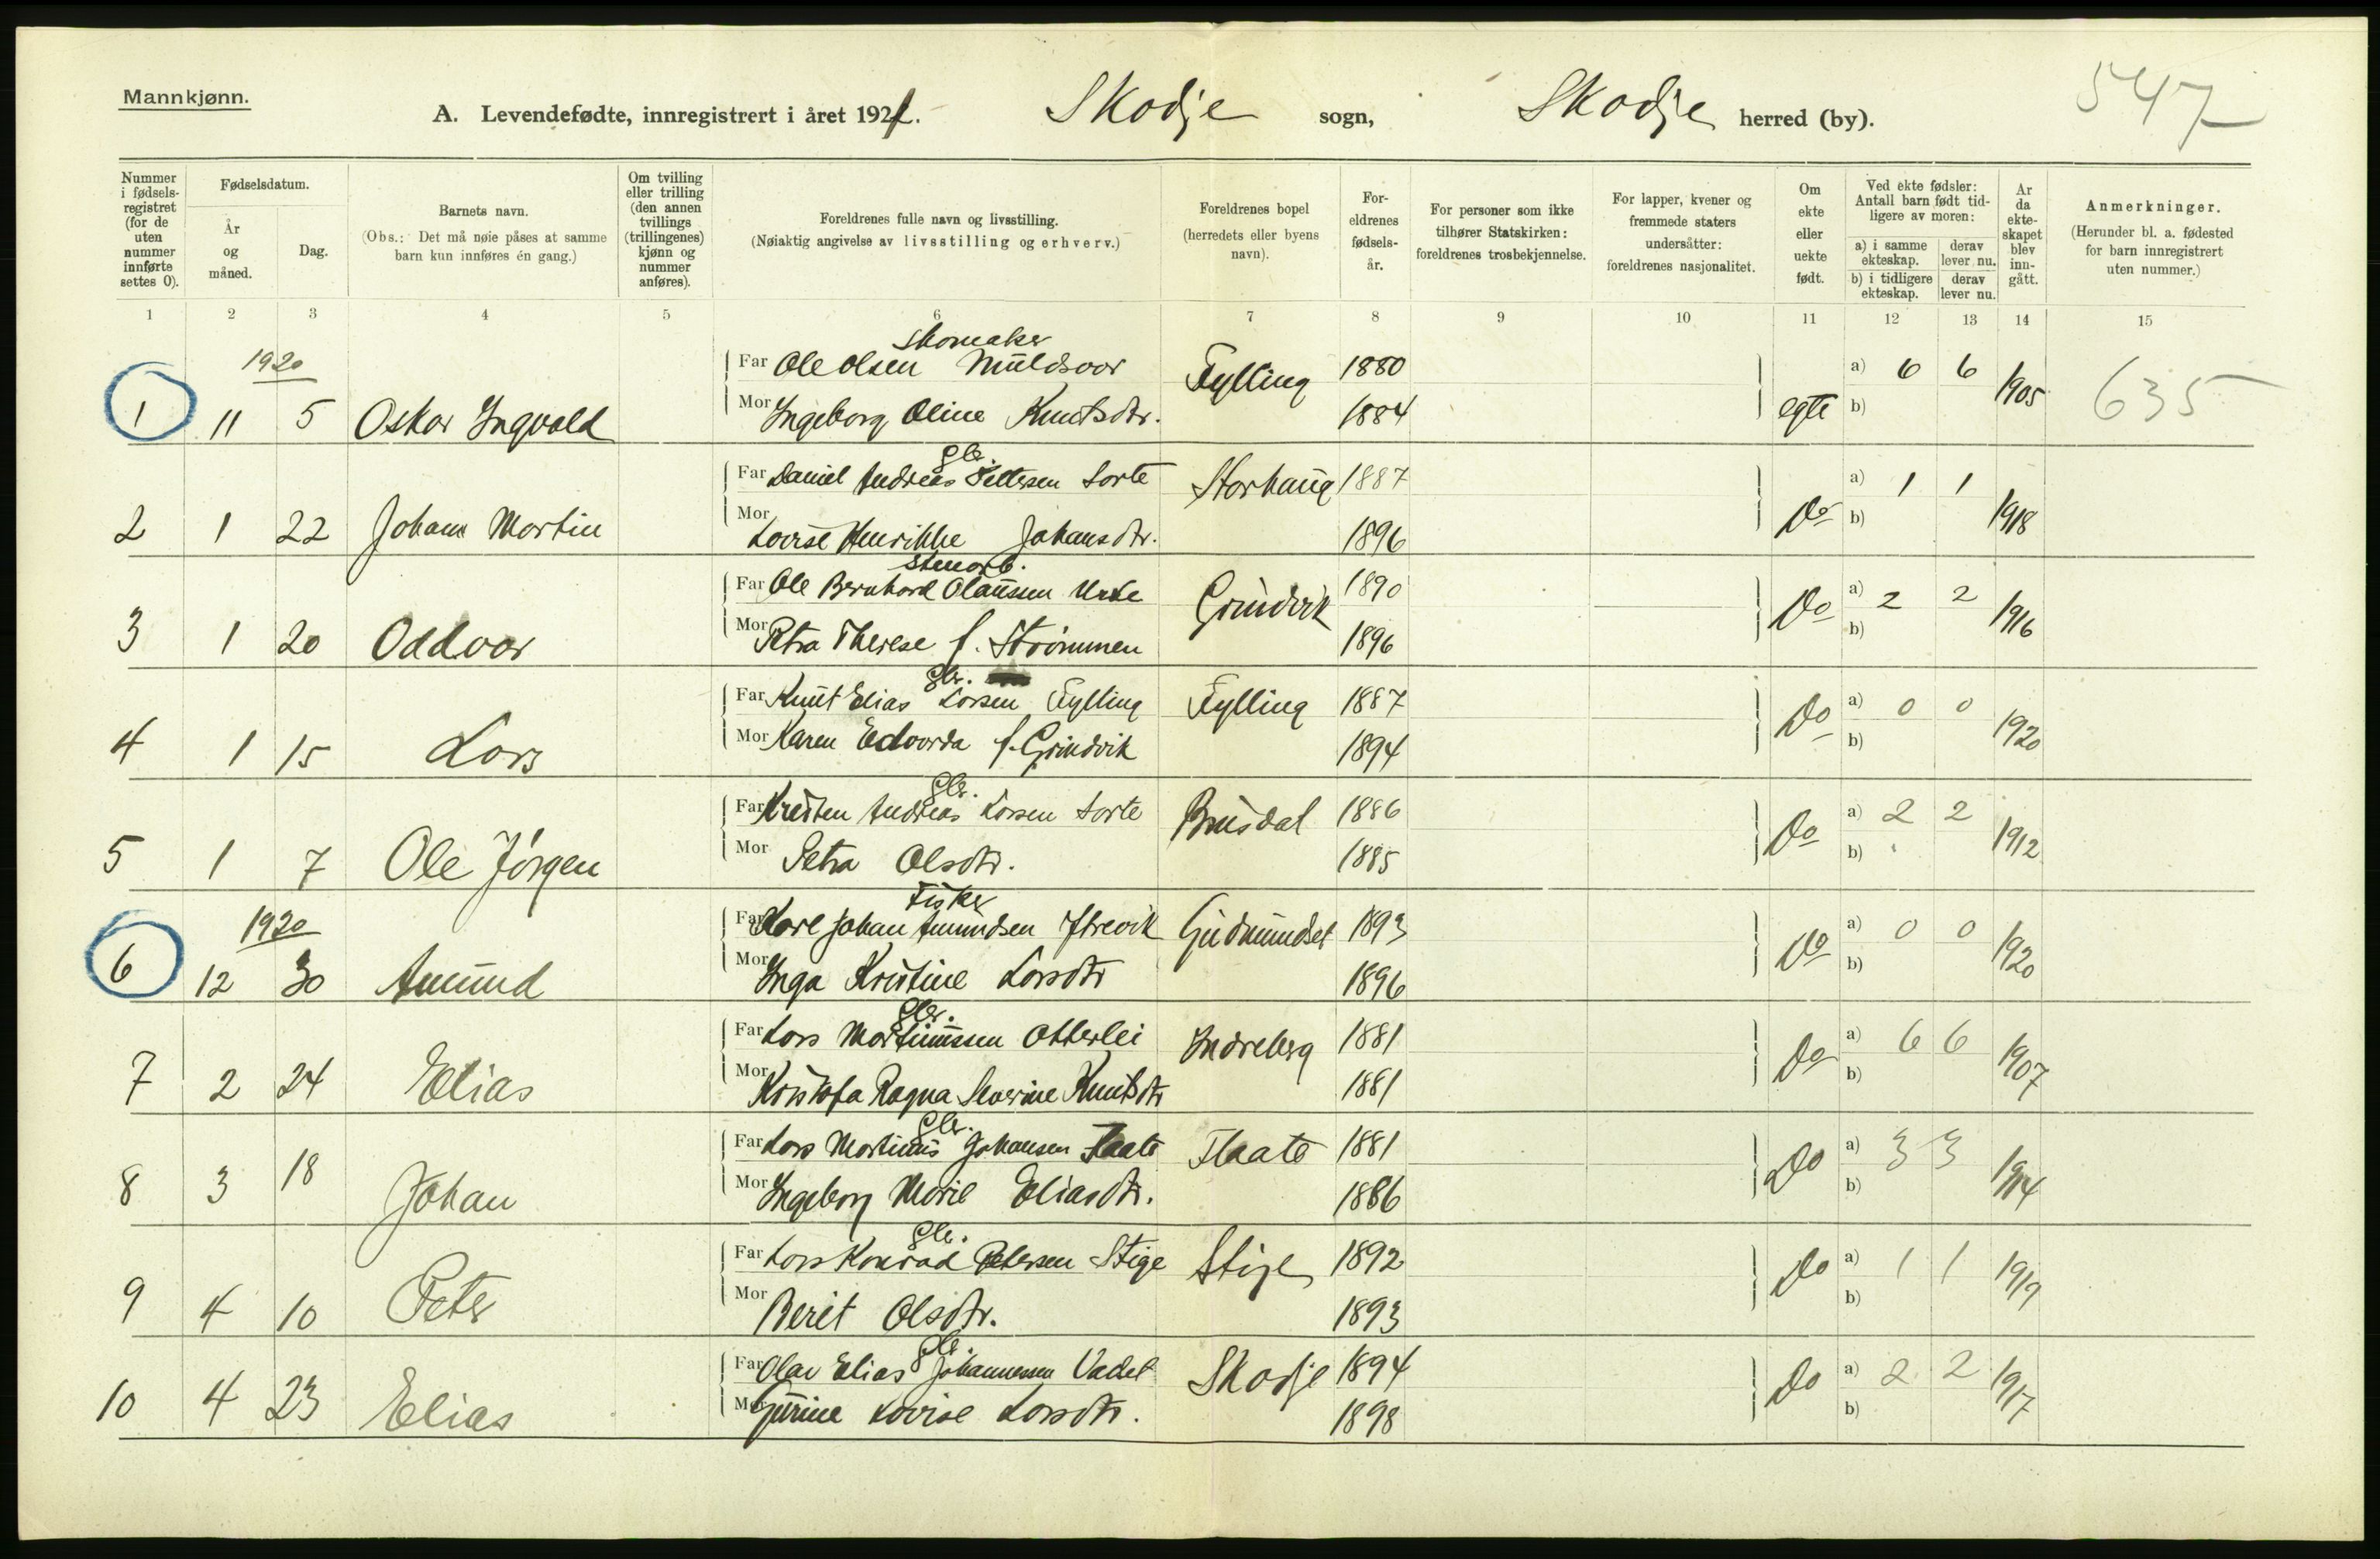 Mannkjønn.
A. Levendefødte, innregistrert i året 1921. Skodje sogn, Skodje herred (by). 547
Nummer i fødselsregistret (for de uten nummer innførte settes 0).
Fødselsdatum.
År og måned.
Dag.
Barnets navn.
(Obs.: Det må nøie påses at samme barn kun innføres én gang.)
Om tvilling eller trilling (den annen tvillings (trillingenes) kjønn og nummer anføres).
Foreldrenes fulle navn og livsstilling.
(Nøiaktig angivelse av livsstilling og erhverv.)
Foreldrenes bopel (herredets eller byens navn).
Foreldrenes fødselsår.
For personer som ikke tilhører Statskirken: foreldrenes trosbekjennelse.
For lapper, kvener og fremmede staters undersåtter: foreldrenes nasjonalitet.
Om ekte eller uekte født.
Ved ekte fødsler: Antall barn født tidligere av moren:
a) i samme ekteskap. derav lever nu.
b) i tidligere ekteskap. derav lever nu.
År da ekteskapet blev inngått.
Anmerkninger.
(Herunder bl. a. fødested for barn innregistrert uten nummer.)
1 2 3 4 5 6 7 8 9 10 11 12 13 14 15
1920 Skomaker
Far Ole Olsen Muldsvor Fylling 1880 a) 6 6 1905 635
1 11 5 Oskar Ingvald Mor Ingeborg Oline Knutsdtr. 1884 egte b)
gbr.
Far Daniel Andreas Pettersen Sorte Storhaug 1887 a) 1 1 1918
2 1 22 Johan Martin Mor Lovise Henrikke Johansdtr. 1896 Do b)
Stenarb.
Far Ole Bernhard Olaussen Urke Grindvik 1890 a) 2 2 1916
3 1 20 Oddvar Mor Petra Therese f. Strømmen 1896 Do b)
gbr.
Far Knut Elias Larsen Fylling Fylling 1887 a) 0 0 1920
4 1 15 Lars Mor Karen Edvarda f. Grindvik 1894 Do b)
gbr.
Far Kristen Andreas Larsen Sorte Brusdal 1886 a) 2 2 1912
5 1 7 Ole Jørgen Mor Petra Olsdtr. 1885 Do b)
1920 Fisker
Far Karl Johan Amundsen Ytrevik Gudmundset 1893 a) 0 0 1920
6 12 30 Amund Mor Inga Kristine Larsdtr 1896 Do b)
gbr.
Far Lars Martinussen Otterlei Indreberg 1881 a) 6 6 1907
7 2 24 Elias Mor Kristofa Ragna Severine Knutsdtr 1881 Do b)
gbr.
Far Lars Martinus Johansen Flaate Flaate 1881 a) 3 3 1914
8 3 18 Johan Mor Ingeborg Marie Eliasdtr. 1886 Do b)
gbr.
Far Lars Konrad Petersen Stige Stige 1892 a) 1 1 1919
9 4 10 Peter Mor Berit Olsdtr. 1893 Do b)
gbr.
Far Olav Elias Johannessen Vadet Skodje 1894 a) 2 2 1917
10 4 23 Elias Mor Gurine Lovise Larsdtr. 1898 Do b)